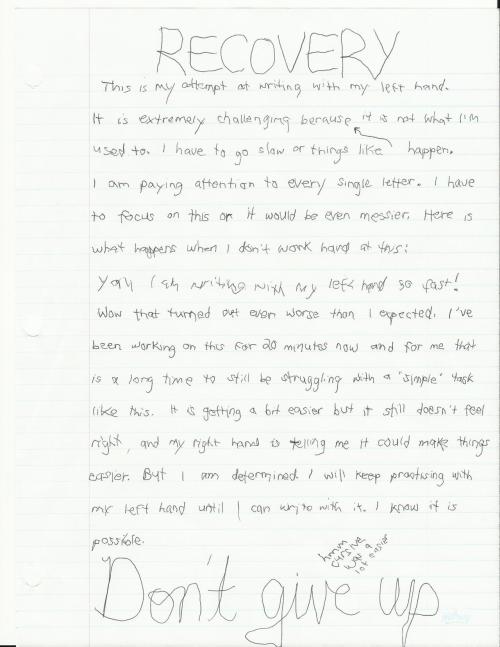 RECOVERY
This is my attempt at writing with my left hand.
It is extremely challenging because it is not what I'm
used to. I have to go slow or things like happen.
I am paying attention to every single letter. I have
to focus on this or it would be even messier. Here is
what happens when I don't work hard at this:
Yay I am writing with my left hand so fast!
Wow that turned out even worse than I expected. I've
been working on this for 20 minutes now and for me that
is a long time to still be struggling with a "simple" task
like this. It is getting a bit easier but it still doesn't feel
right, and my right hand is telling me it could make things
easier. But I am determined. I will keep practising with
my left hand until I can write with it. I know it is
possible.
hmm
cursive
was a
lot easier
Don't give up